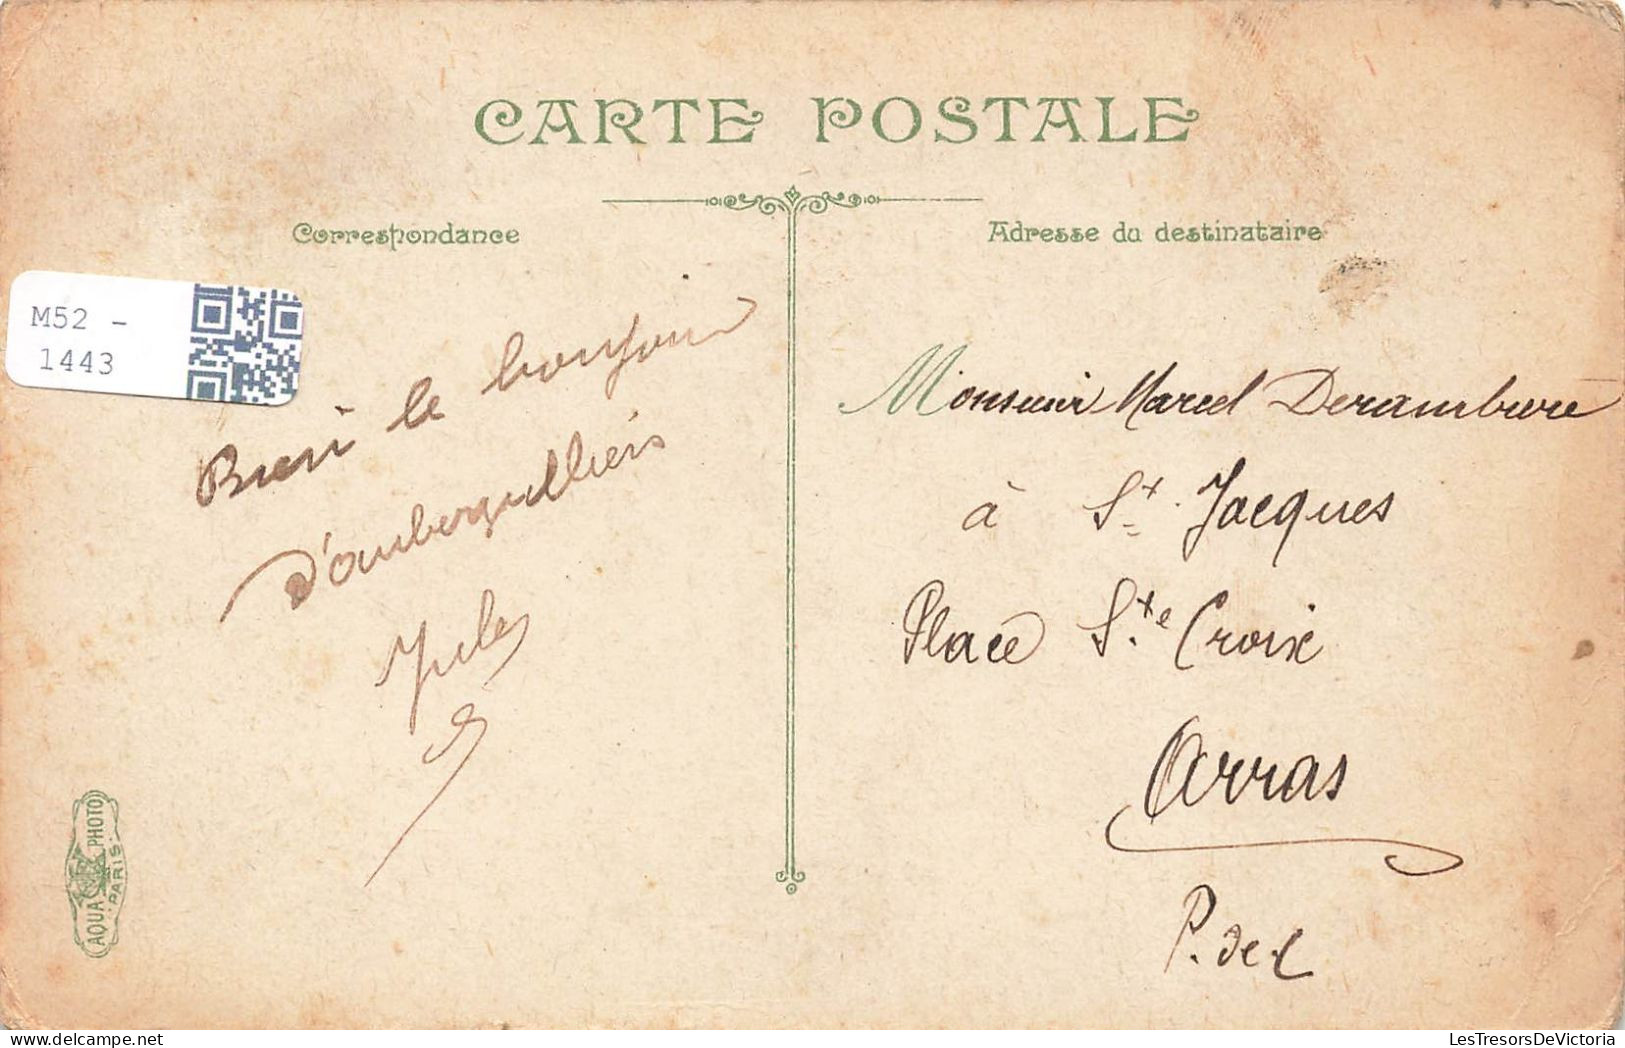 CARTE POSTALE
Correspondance
Adresse du destinataire
M52 -
1443
Bien le bonjour
d'aubervilliers
Jules
Monsieur Marcel Derambure
à St. Jacques
Place Ste Croix
Arras
P. de C
AQUA PHOTO
PARIS
LesTresorsDeVictoria